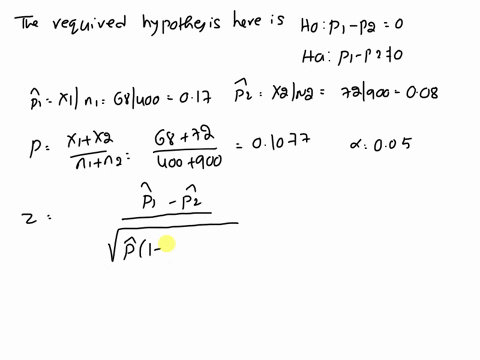 The required hypothesis here is Ho: p1-p2 = 0
Ha: p1-p2≠0
p̂1 = x1/n1 = 68/400 = 0.17 p̂2 = x2/n2 = 72/900 = 0.08
p̂ = x1+x2/n1+n2 = 68+72/400+900 = 0.1077 α = 0.05
z = p̂1 - p̂2
√p̂(1-